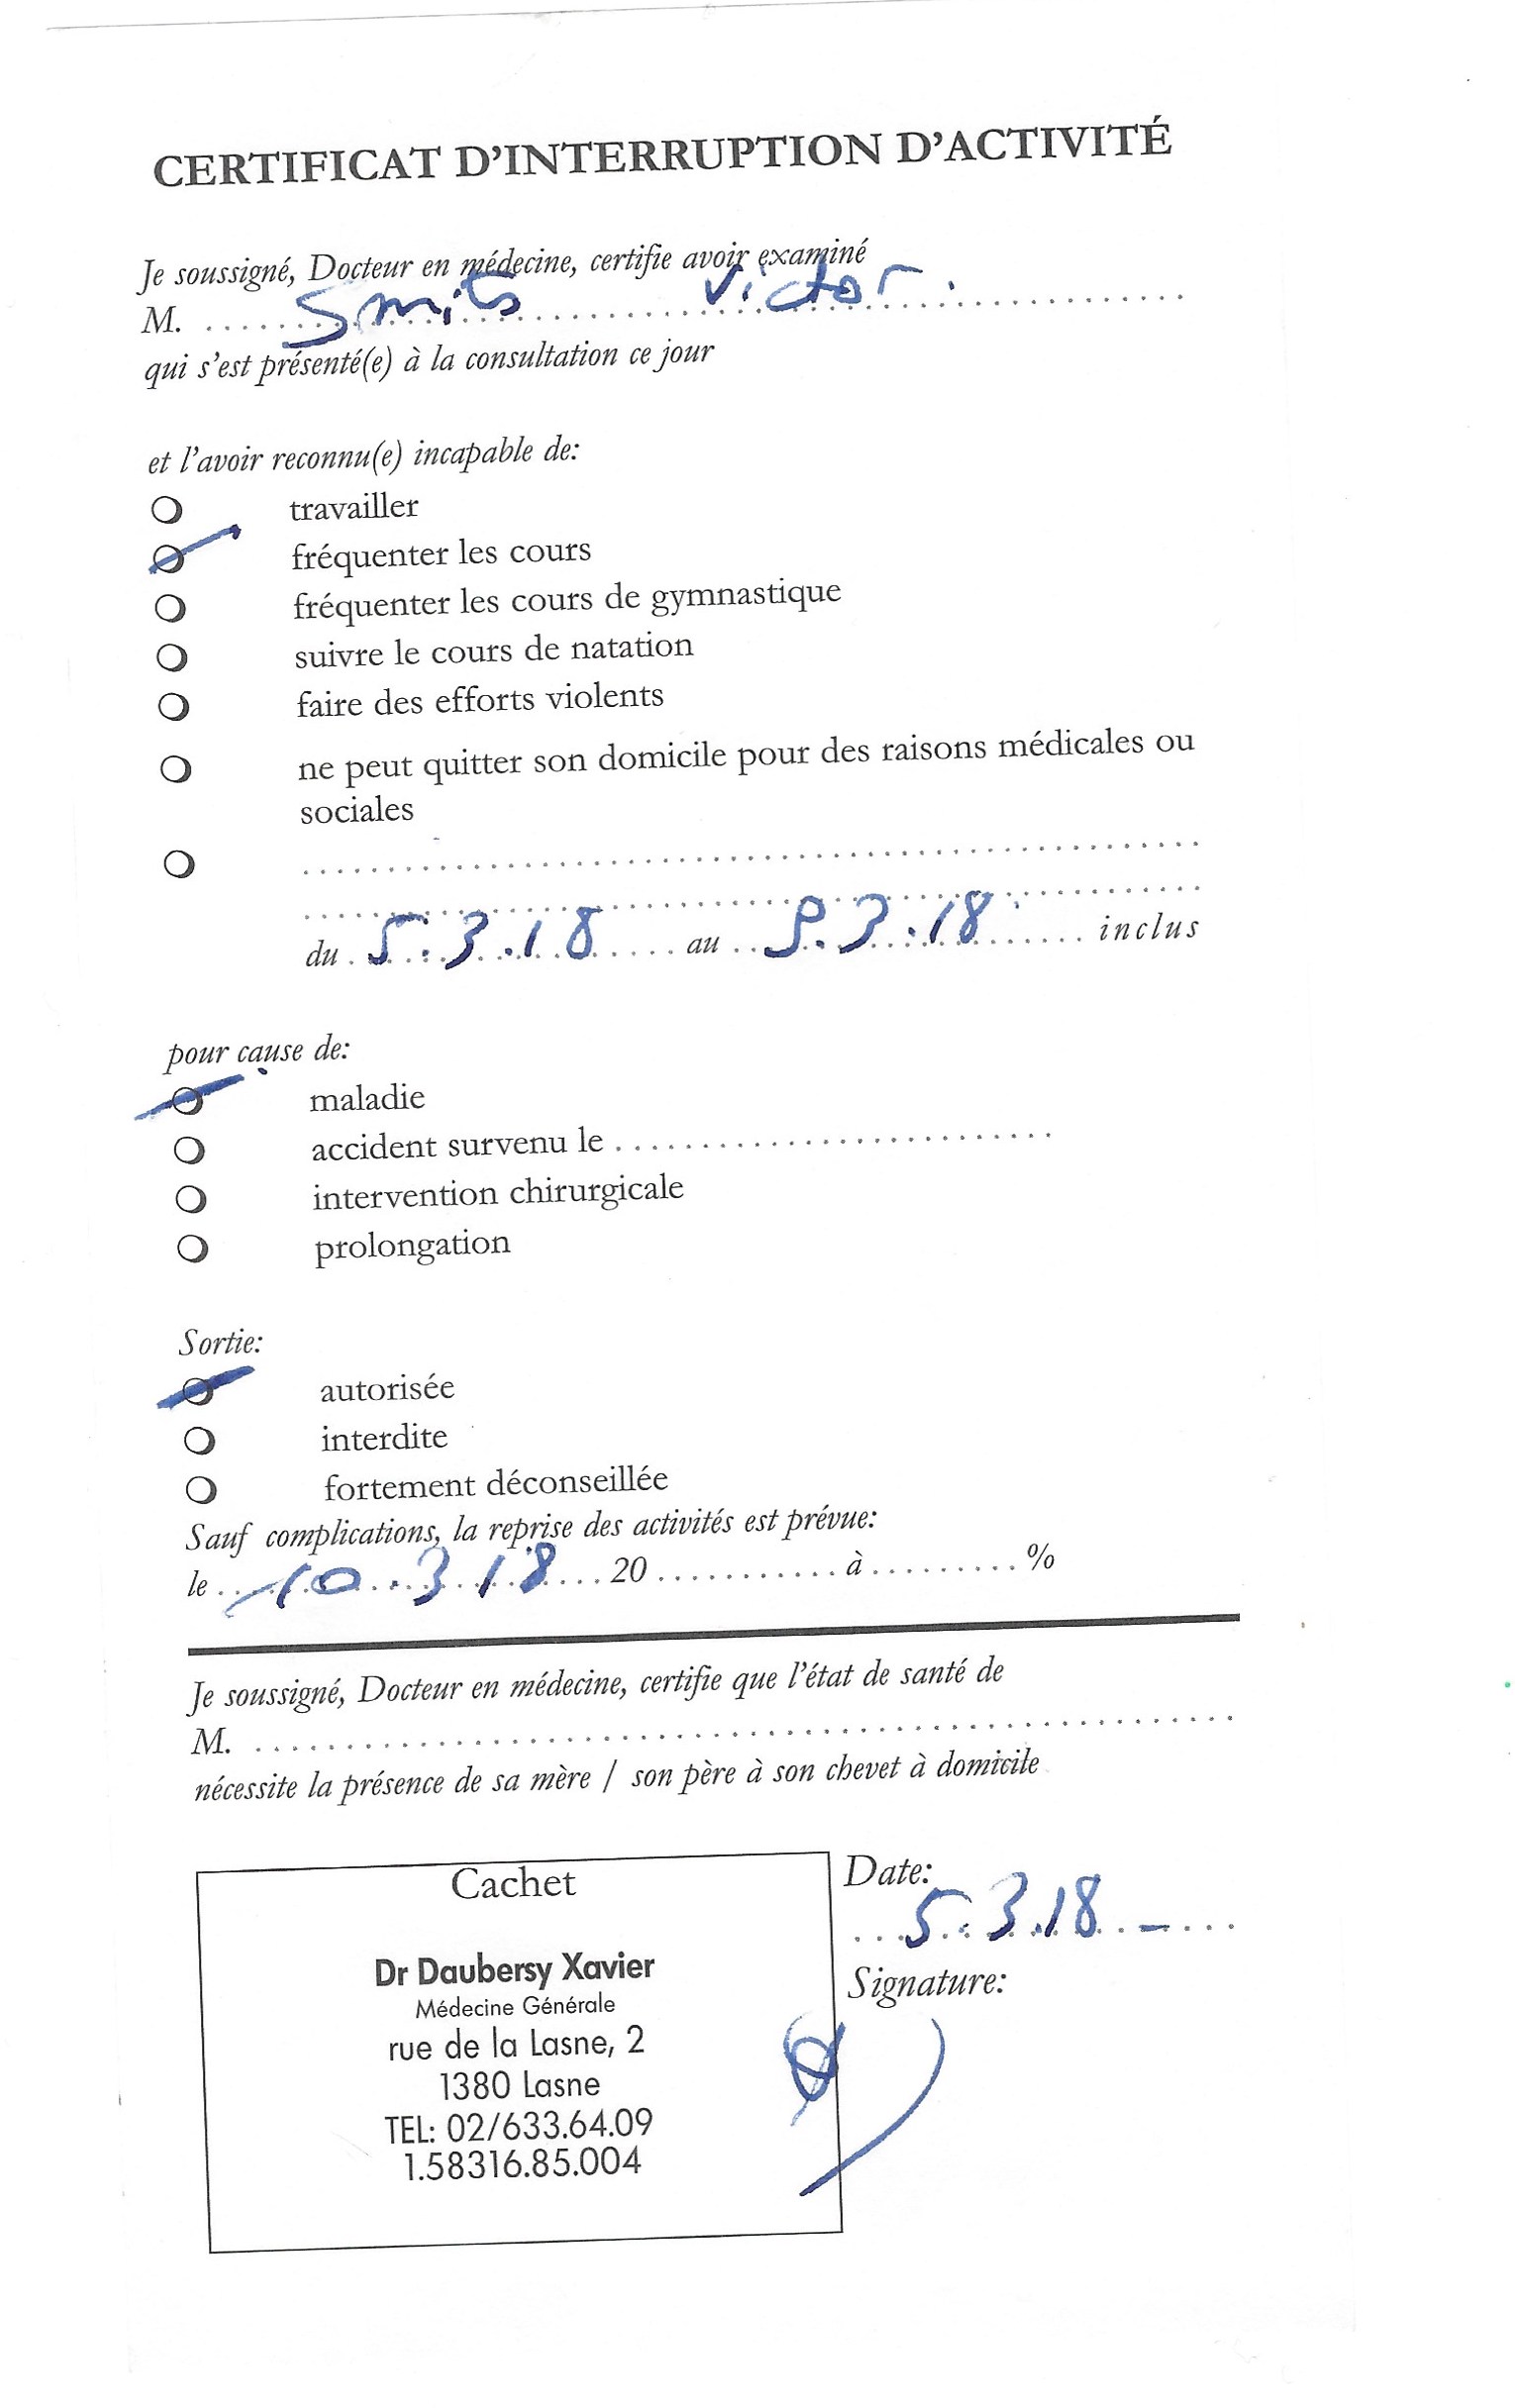 CERTIFICAT D'INTERRUPTION D'ACTIVITÉ
Je soussigné, Docteur en médecine, certifie avoir examiné
M. Smits Victor
qui s'est présenté(e) à la consultation ce jour
et l'avoir reconnu(e) incapable de:
travailler
fréquenter les cours
fréquenter les cours de gymnastique
suivre le cours de natation
faire des efforts violents
ne peut quitter son domicile pour des raisons médicales ou
sociales
du 5.3.18 au 9.3.18 inclus
pour cause de:
maladie
accident survenu le
intervention chirurgicale
prolongation
Sortie:
autorisée
interdite
fortement déconseillée
Sauf complications, la reprise des activités est prévue:
le 10.3 18 20 à %
Je soussigné, Docteur en médecine, certifie que l'état de santé de
M.
nécessite la présence de sa mère / son père à son chevet à domicile
Cachet
Dr Daubersy Xavier
Médecine Générale
rue de la Lasne, 2
1380 Lasne
TEL: 02/633.64.09
1.58316.85.004
Date:
5.3.18
Signature: